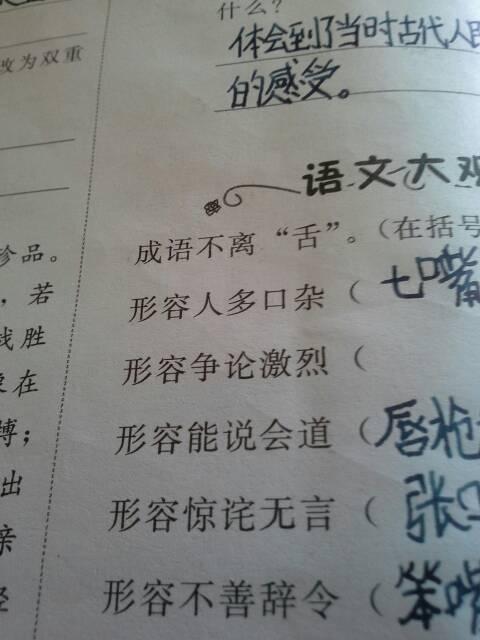 什么?
体会到了当时古代人民
的感受。
改为双重
语文大观
珍品。
,若
战胜
象在
搏;
出
亲
经
成语不离“舌”。(在括号
形容人多口杂(七嘴
形容争论激烈(
形容能说会道(唇枪
形容惊诧无言(张口
形容不善辞令(笨嘴